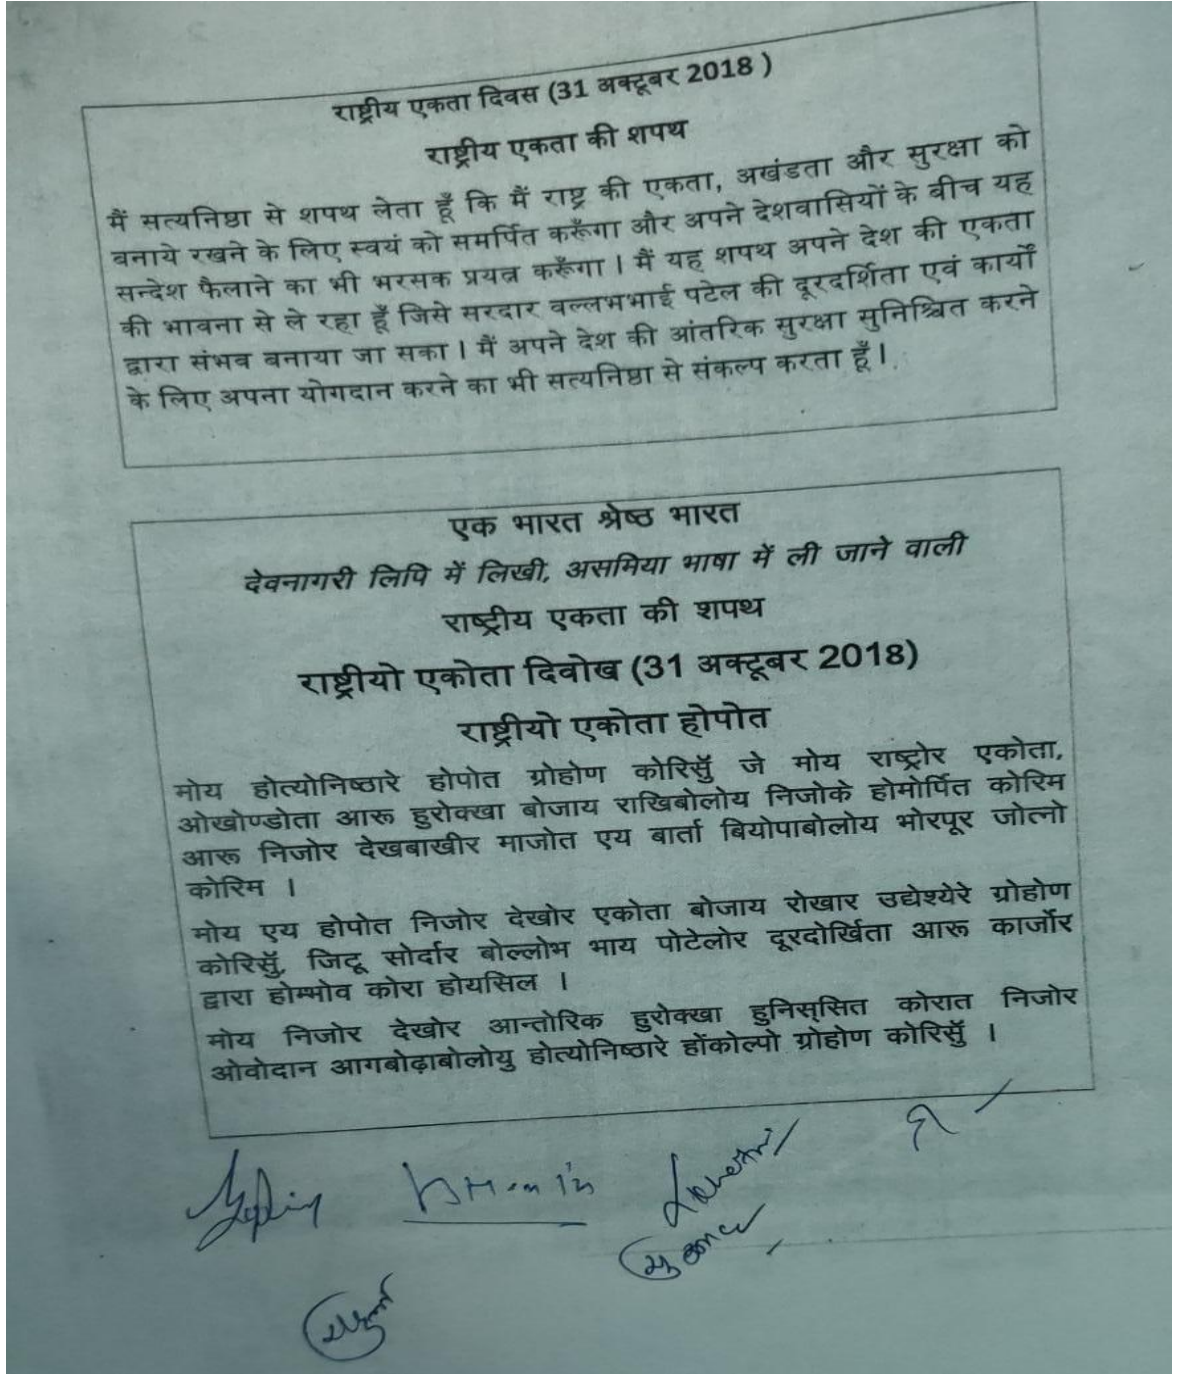 राष्ट्रीय एकता दिवस (31 अक्टूबर 2018 )
राष्ट्रीय एकता की शपथ
मैं सत्यनिष्ठा से शपथ लेता हूँ कि मैं राष्ट्र की एकता, अखंडता और सुरक्षा को
बनाये रखने के लिए स्वयं को समर्पित करूँगा और अपने देशवासियों के बीच यह
सन्देश फैलाने का भी भरसक प्रयत्न करूँगा । मैं यह शपथ अपने देश की एकता
की भावना से ले रहा हूँ जिसे सरदार वल्लभभाई पटेल की दूरदर्शिता एवं कार्यों
द्वारा संभव बनाया जा सका । मैं अपने देश की आंतरिक सुरक्षा सुनिश्चित करने
के लिए अपना योगदान करने का भी सत्यनिष्ठा से संकल्प करता हूँ ।
एक भारत श्रेष्ठ भारत
देवनागरी लिपि में लिखी, असमिया भाषा में ली जाने वाली
राष्ट्रीय एकता की शपथ
राष्ट्रीयो एकोता दिवोख (31 अक्टूबर 2018)
राष्ट्रीयो एकोता होपोत
मोय होत्योनिष्ठारे होपोत ग्रोहोण कोरिसुँ जे मोय राष्ट्रोर एकोता,
ओखोण्डोता आरू हुरोक्खा बोजाय राखिबोलोय निजोके होमोर्पित कोरिम
आरू निजोर देखबाखीर माजोत एय बार्ता बियोपाबोलोय भोरपूर जोत्नो
कोरिम ।
मोय एय होपोत निजोर देखोर एकोता बोजाय रोखार उद्येश्येरे ग्रोहोण
कोरिसुँ, जिटू सोर्दार बोल्लोभ भाय पोटेलोर दूरदोर्खिता आरू कार्जोर
द्वारा होम्भोव कोरा होयसिल ।
मोय निजोर देखोर आन्तोरिक हुरोक्खा हुनिस्सित कोरात निजोर
ओवोदान आगबोढ़ाबोलोयु होत्योनिष्ठारे होंकोल्पो ग्रोहोण कोरिसुँ ।